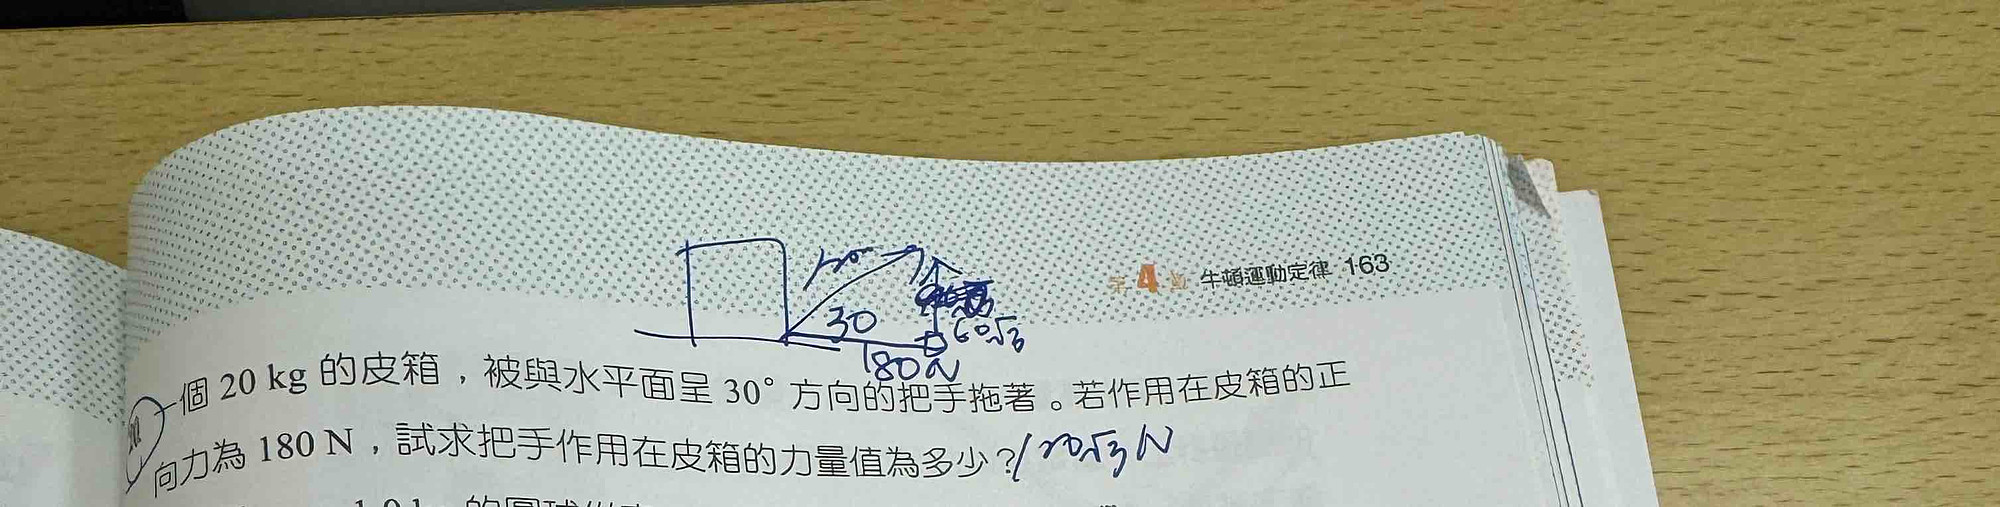 第4章 牛頓運動定律 163
30
60√3
180N
一個 20 kg 的皮箱，被與水平面呈 30° 方向的把手拖著。若作用在皮箱的正
向力為 180 N，試求把手作用在皮箱的力量值為多少？120√3 N
的圓球